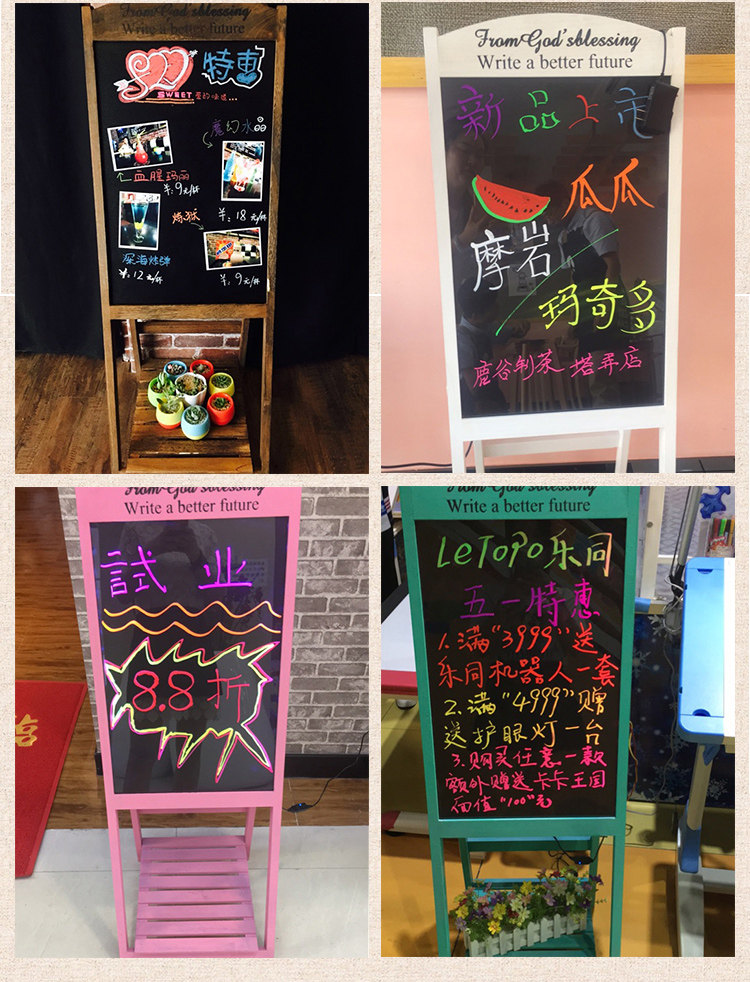 From God'sblessing
Write a better future
特惠
SWEET 蜜的味道...
魔幻水晶
血腥玛丽
¥:9元/杯
¥:18元/杯
炼狱
深海炸弹
¥:12元/杯
¥:9元/杯
From God'sblessing
Write a better future
新品上市
瓜瓜
摩岩
玛奇多
鹿谷制茶 塔弄店
From God'sblessing
Write a better future
試业
8.8折
From God'sblessing
Write a better future
LeTopo乐同
五一特惠
1.满"3999"送
乐同机器人一套
2.满"4999"赠
送护眼灯一台
3.购买任意一款
额外赠送卡卡王国
面值"100"元